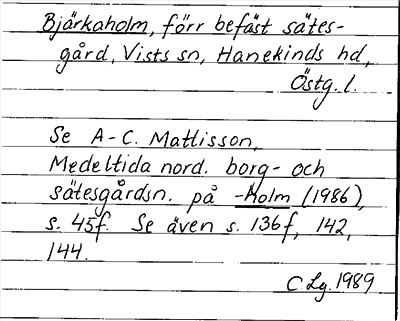 Bjärkaholm, förr befäst sätes-
gård, Vists sn, Hanekinds hd,
Östg. l.
Se A-C. Mattisson,
Medeltida nord. borg- och
sätesgårdsn. på -holm (1986),
s. 45f. Se även s. 136f, 142,
144.
C Lg. 1989